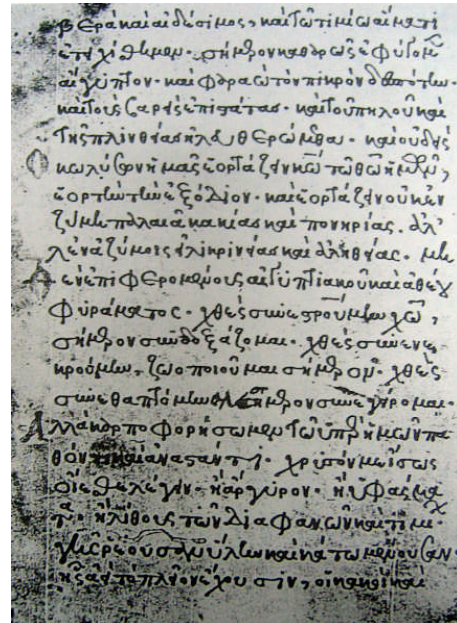 βερὰ καὶ αἰδέσιμος· καὶ τῶ τιμίω αἵματι
ἐτειχίσθημεν· σήμερον καθαρῶς ἐφύγομεν
αἴγυπτον· καὶ φαραὼ τὸν πικρὸν δεσπότην·
καὶ τοὺς βαρεῖς ἐπιστάτας· καὶ τοῦ πηλοῦ καὶ
τῆς πλινθείας ἠλευθερώμεθα· καὶ οὐδεὶς
ὁ κωλύσων ἡμᾶς ἑορτάζειν κῶ τῶ θῶ ἡμῶν,
ἑορτὴν τὴν ἐξόδιον· καὶ ἑορτάζειν οὐκ ἐν
ζύμη παλαιᾶ κακίας καὶ πονηρίας· ἀλ
λ' ἐν ἀζύμοις εἰλικρινείας καὶ ἀληθείας· μηδὲ
ἐν ἐπιφερομένους αἰγυπτιακοῦ καὶ ἀθέου
φυράματος· χθὲς συνεσταυρούμην χῶ,
σήμερον συνδοξάζομαι· χθὲς συνενε
κρούμην, ζωοποιοῦμαι σήμερον· χθὲς
συνεθαπτόμην σήμερον συνεγείρομαι·
Ἀλλὰ καρποφορήσωμεν τῶ ὑπὲρ ἡμῶν πα
θόντι καὶ ἀναστάντι· χρυσόν με ἴσως
οἴεσθε λέγειν· ἢ ἄργυρον· ἢ ὑφάσμα
τα· ἢ λίθους τῶν διαφανῶν καὶ τιμί
γῆς ῥέουσαν ὕλην καὶ κάτω μένουσαν·
ἧς ἀεὶ τὸ πλεῖον ἔχουσιν, οἱ κακοὶ καὶ